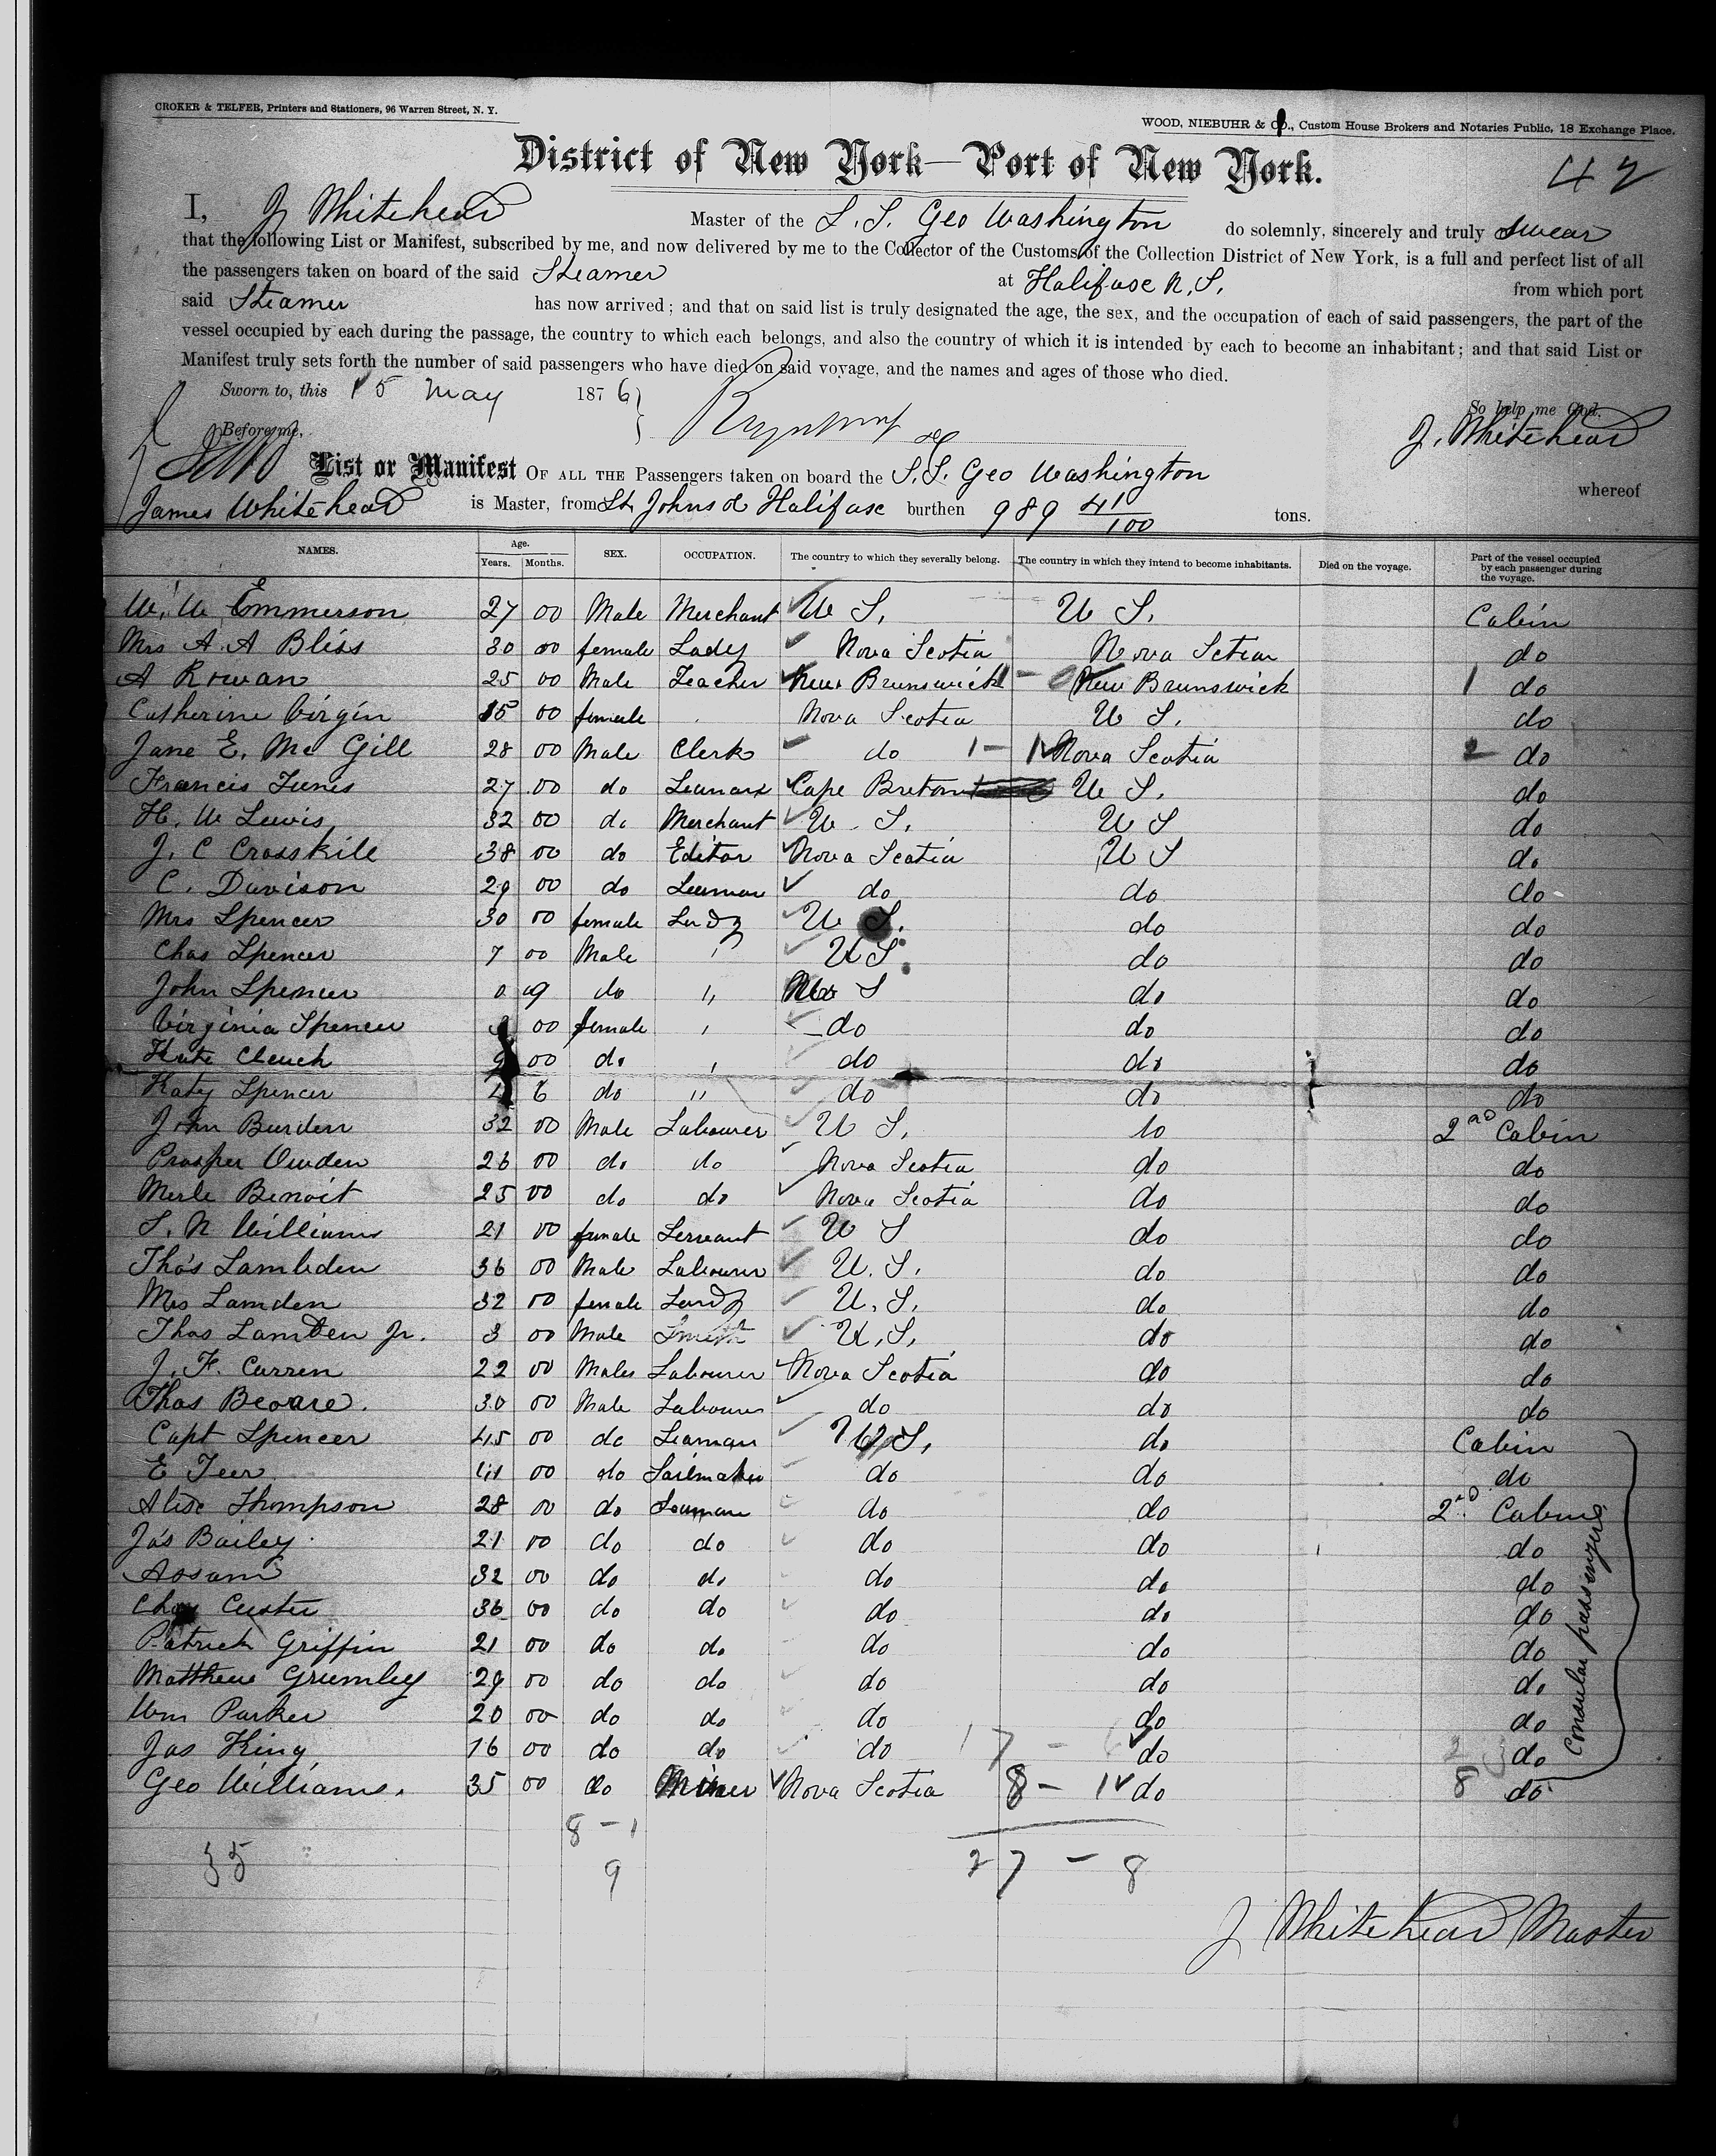 CROKER & TELFER, Printers and Stationers, 96 Warren Street, N. Y.
WOOD, NIEBUHR & CO., Custom House Brokers and Notaries Public, 18 Exchange Place.
District of New York—Port of New York.
42
I, J Whitehead Master of the S. S. Geo Washington do solemnly, sincerely and truly swear
that the following List or Manifest, subscribed by me, and now delivered by me to the Collector of the Customs of the Collection District of New York, is a full and perfect list of all
the passengers taken on board of the said Steamer at Halifax N. S. from which port
said Steamer has now arrived; and that on said list is truly designated the age, the sex, and the occupation of each of said passengers, the part of the
vessel occupied by each during the passage, the country to which each belongs, and also the country of which it is intended by each to become an inhabitant; and that said List or
Manifest truly sets forth the number of said passengers who have died on said voyage, and the names and ages of those who died.
Sworn to, this 15 May 1876
So help me God.
Before me,
J. Whitehead
List or Manifest OF ALL THE Passengers taken on board the S. S. Geo Washington whereof
James Whitehead is Master, from St Johns & Halifax burthen 989 41/100 tons.
NAMES. Age. Years. Months. SEX. OCCUPATION. The country to which they severally belong. The country in which they intend to become inhabitants. Died on the voyage. Part of the vessel occupied by each passenger during the voyage.
W. W Emmerson 27 00 Male Merchant U S. U S. Cabin
Mrs A. A Bliss 30 00 female Lady Nova Scotia Nova Sctia do
A Rowan 25 00 Male Teacher New Brunswick New Brunswick 1 do
Catherine Virgin 15 00 female Nova Scotia U S. do
Jane E. Mc Gill 28 00 Male Clerk do 1 - 1 Nova Scotia 2 do
Francis 27 00 do Cape Breton U S. do
H. W Lewis 32 00 do Merchant U. S. U S do
J. C Crosskill 38 00 do Editor Nova Scotia U S do
C. Davison 29 00 do Seaman do do do
Mrs Spencer 30 00 female Lady U S. do do
Chas Spencer 7 00 Male U S do do
John Spencer 0 09 do " S do do
Virginia Spencer 00 female do do do
Kate Cheuch 00 do do do do
Katy Spencer 6 do " do do do
John Burden 32 00 Male Labourer U S. do 2nd Cabin
Prosper 26 00 do do Nova Scotia do do
Merle Benoit 25 00 do do Nova Scotia do do
S. N Williams 21 00 female Servant U S do do
Tho's Lambden 36 00 Male Labourer U. S. do do
Mrs Lamden 32 00 female Lady U. S. do do
Thos Lambden Jr. 3 00 Male U. S. do do
J. F. Curren 22 00 Males Labourer Nova Scotia do do
Thos 30 00 Male Labourer do do do
Capt Spencer 45 00 do Seaman U S. do Cabin
E Teer 41 00 do Sailmaker do do do
Alex Thompson 28 00 do Seaman do do 2nd Cabin
Jas Bailey 21 00 do do do do do
Assam 32 00 do do do do do
Chas Custer 36 00 do do do do do
Patrick Griffin 21 00 do do do do do
Matthew Grumley 29 00 do do do do do
Wm Parker 20 00 do do do do do
Jas King 16 00 do do do do do
Geo Williams. 35 00 do Miner Nova Scotia 8 - 1 do 8 do
Consular passengers
8 - 1
35
9
27 - 8
J Whitehead Master